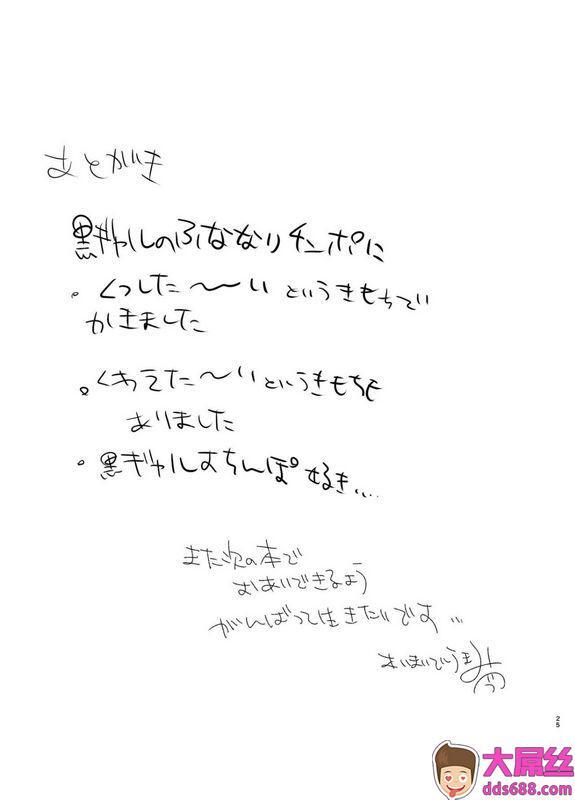 あとがき
黒ギャルのふたなりチンポに
・くっした〜いというきもちで
かきました
・くわえた〜いというきもちも
ありました
・黒ギャルおちんぽ好き...
また次の本で
おあいできるよう
がんばって生きたいです...
25
大屌丝
dds688.com